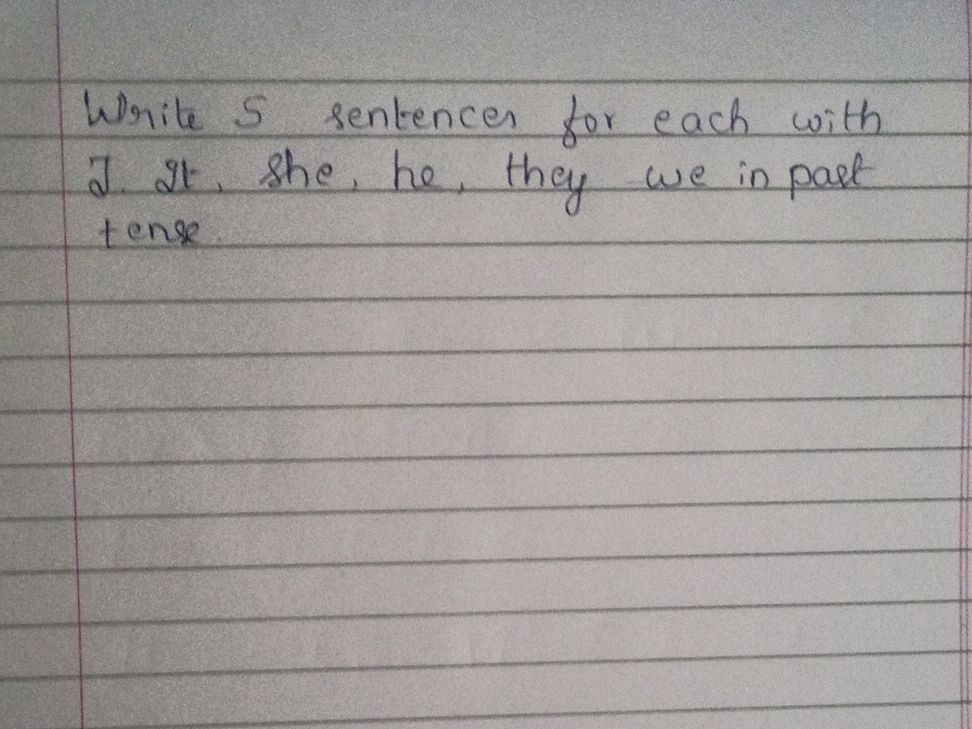 Write 5 sentences for each with
I. It, she, he, they we in past
tense.